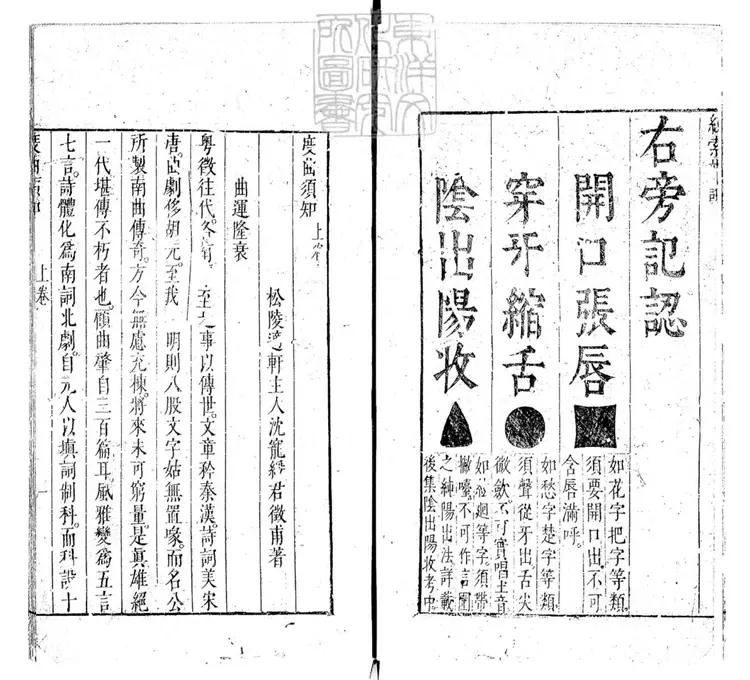 右旁記認
開口張唇
如花字把字等類
須要開口出不可
含唇滿呼。
穿牙縮舌
如愁字楚字等類
須聲從牙出舌尖
微歛不可實唱主音
陰出陽收
迴等字須帶
不可作
之純陽出法詳載
後集陰出陽收考中
東洋文
化研究
所圖書
度曲須知 上卷
松陵軒主人沈寵綏君徵甫著
曲運隆衰
粤徵往代。各有至事以傳世。文章矜秦漢。詩詞美宋
唐。曲劇侈胡元。至我 明則八股文字姑無置喙。而名公
所製南曲傳奇。方今無慮充棟。將來未可窮量。是眞雄絕
一代堪傳不朽者也。顧曲肇自三百篇耳。風雅變爲五言
七言。詩體化爲南詞北劇。自元人以塡詞制科。而科設十
度曲須知 上卷 一